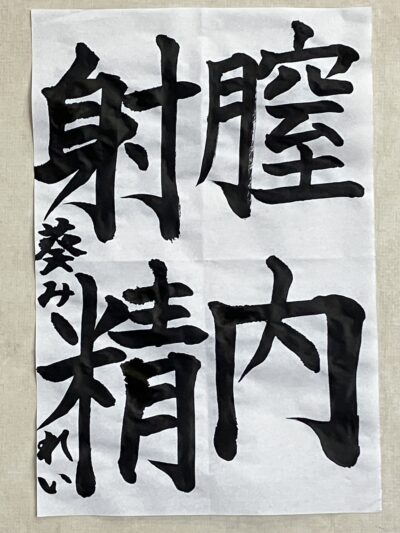 膣内
射精
葵みれい